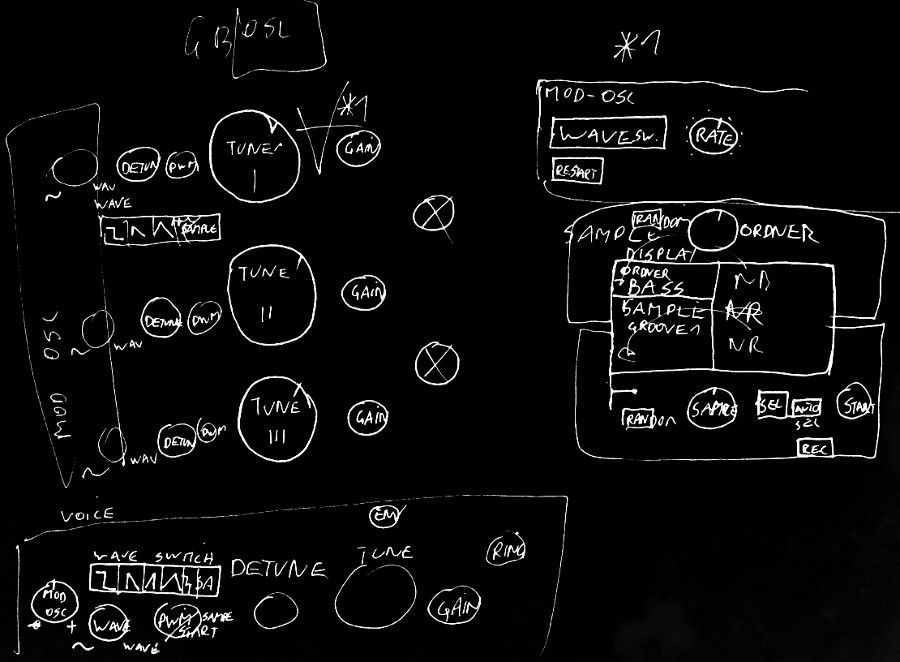 GB/OSC
*1
*1
DETUN
PWM
TUNE
I
GAIN
~
WAV
WAVE
SAMPLE
TUNE
II
GAIN
DETUNE
PWM
~
WAV
MOD OSC
TUNE
III
GAIN
DETUN
PWM
~
WAV
MOD-OSC
WAVE SW.
RATE
RESTART
SAMP
RANDOM
ORDNER
DISPLAY
ORDNER
BASS
SAMPLE
GROOVE 1
NR
NR
RANDOM
SAMPLE
SEL
AUTO
SEL
START
REC
VOICE
WAVE SWITCH
SA
DETUNE
TUNE
RING
MOD
OSC
- +
WAVE
PWM
SAMPLE
START
~ WAVE
GAIN